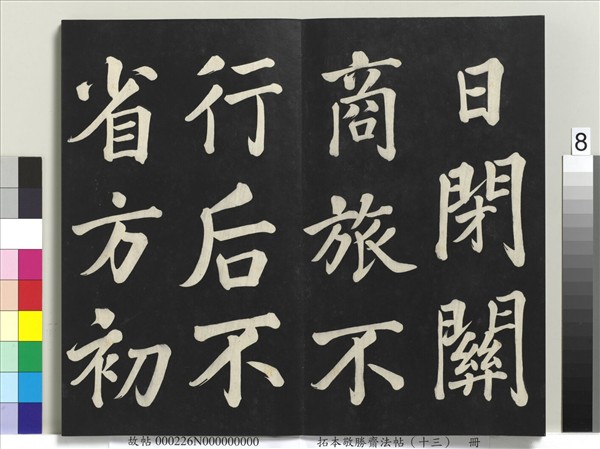 日閉關
商旅不
行后不
省方初
8
故帖 000226N000000000 拓本敬勝齋法帖（十三） 冊